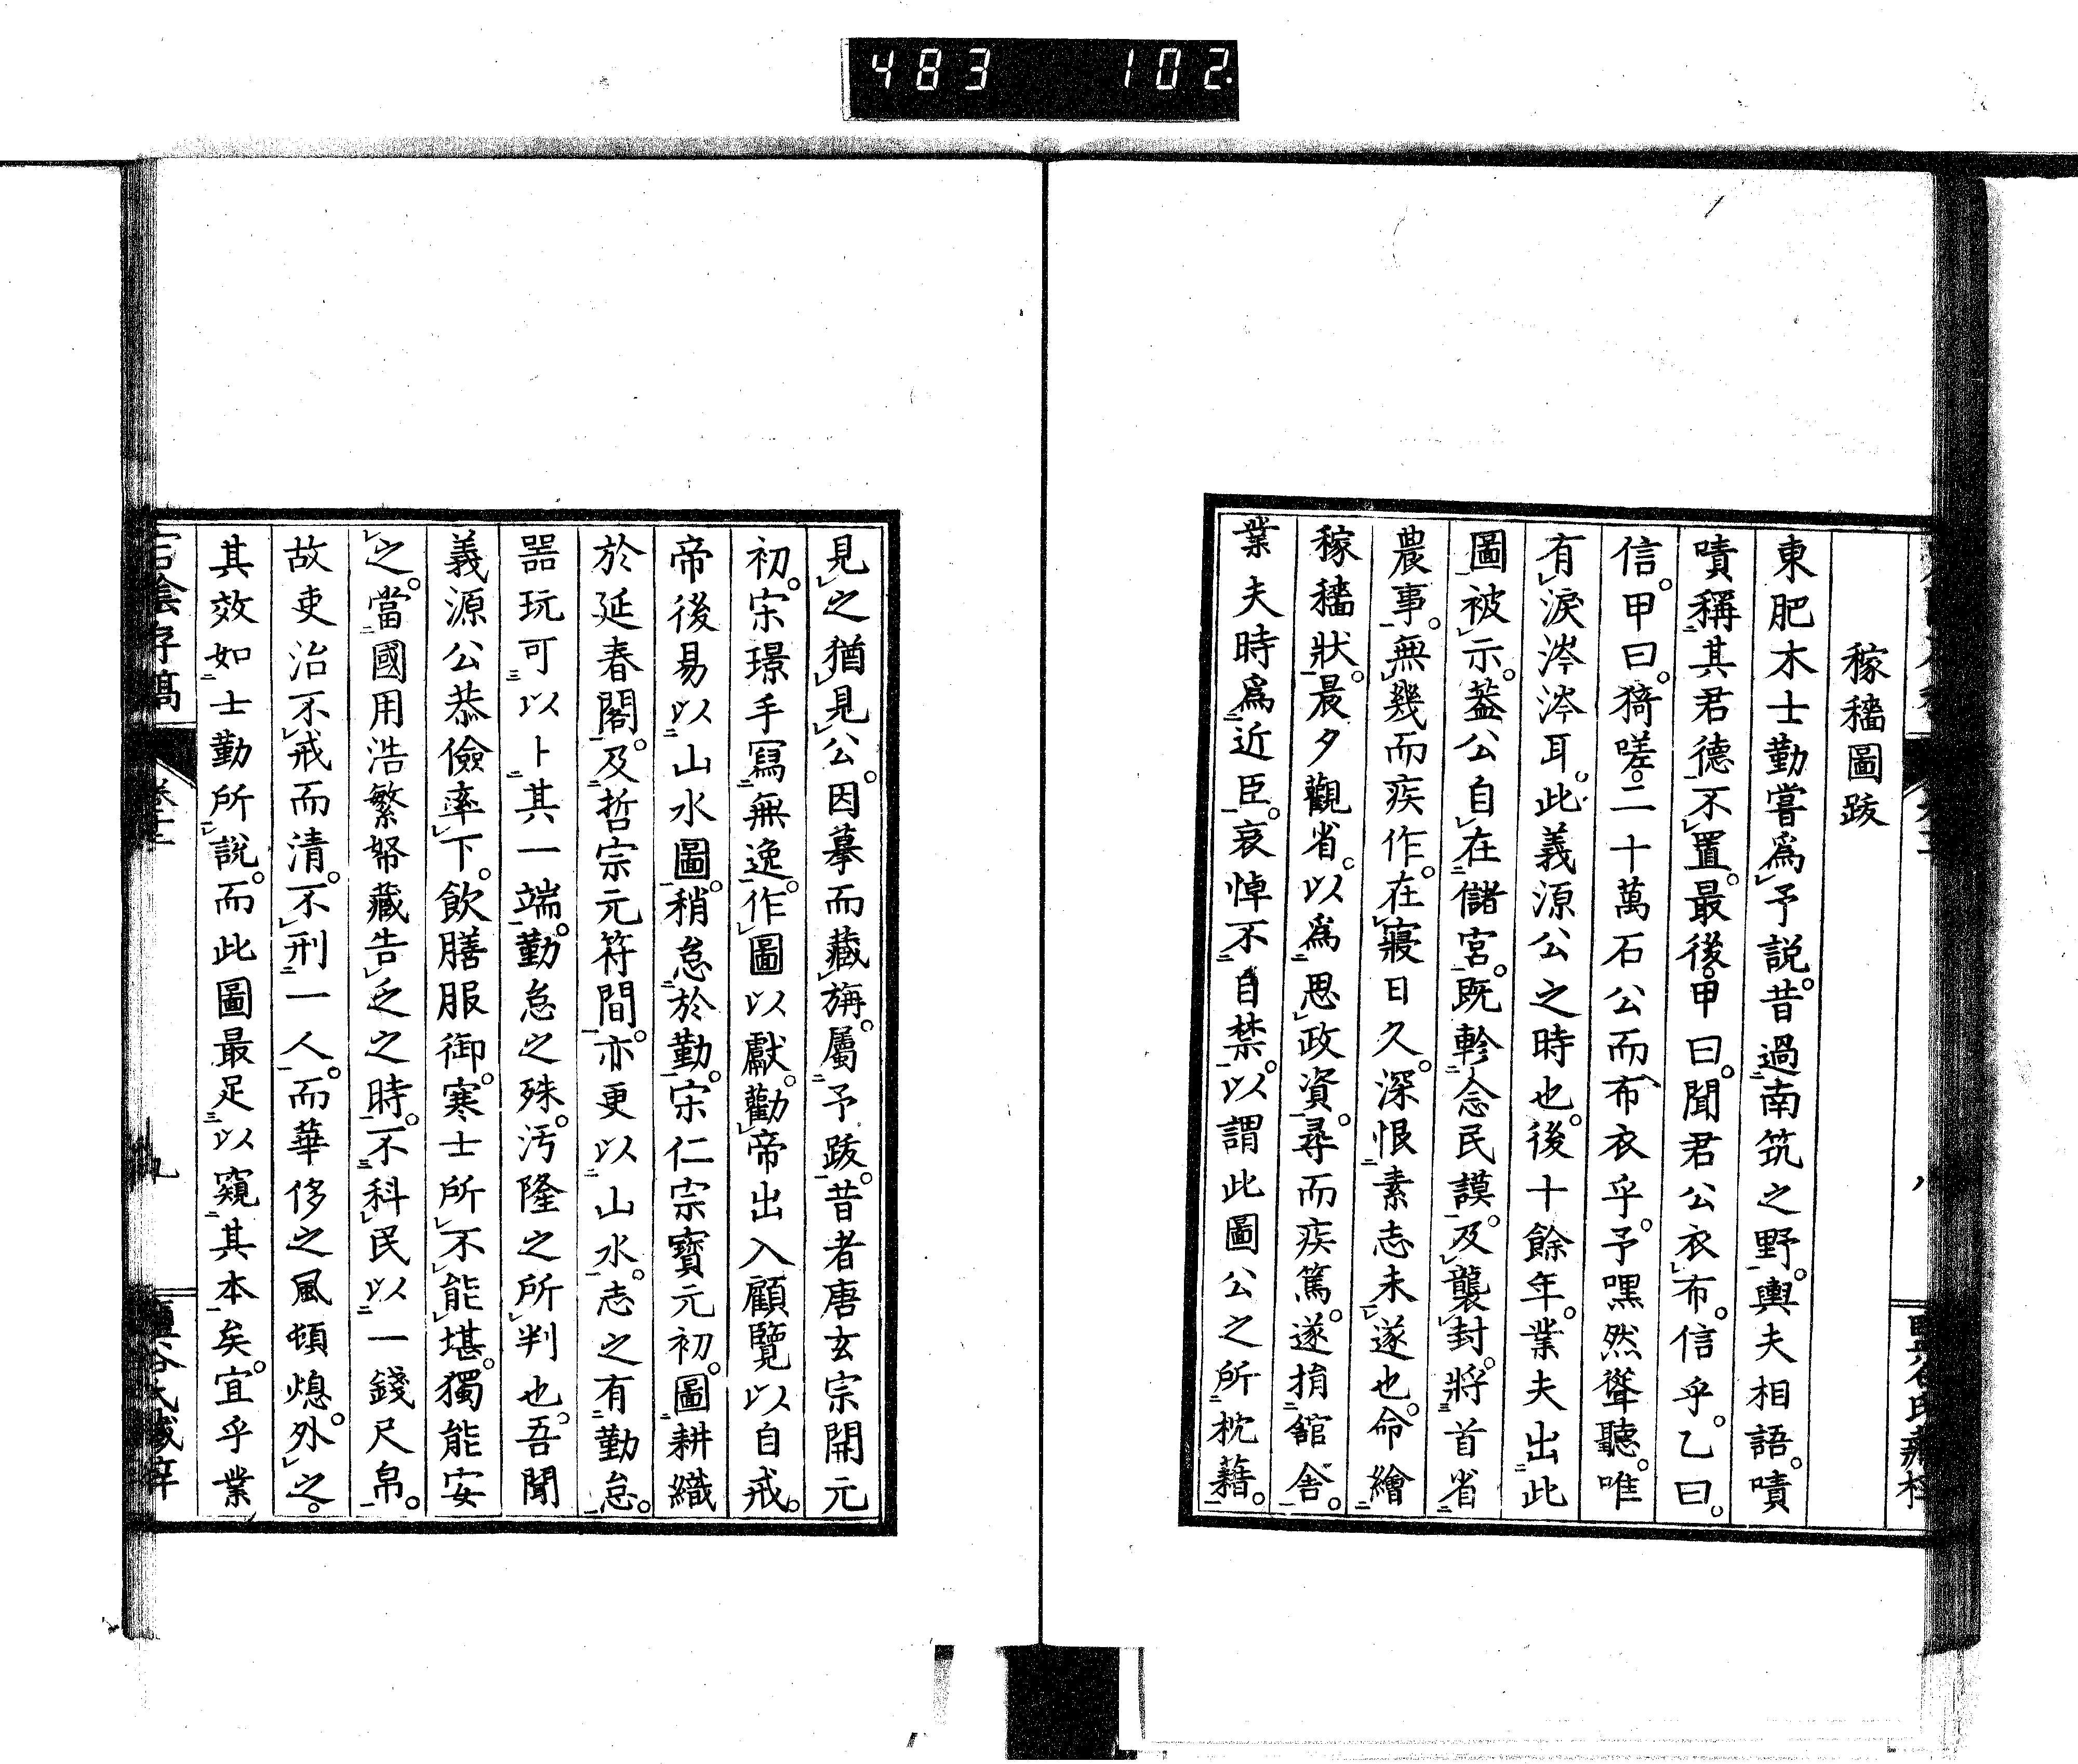 483 102
稼穡圖跋
東肥木士勤嘗爲予説。昔過南筑之野。輿夫相語。嘖
嘖稱其君德不置。最後甲曰。聞君公衣布。信乎。乙曰。
信。甲曰。猗嗟。二十萬石公而布衣乎。予嘿然聳聽。唯
有淚涔涔耳。此義源公之時也。後十餘年。業夫出此
圖被示。葢公自在儲宮。既軫念民謨。及襲封。將首省
農事。無幾而疾作。在寢日久。深恨素志未遂也。命繪
稼穡狀。晨夕觀省。以爲思政資。尋而疾篤。遂捐館舍。
業夫時爲近臣。哀悼不自禁。以謂此圖公之所枕藉。
見之猶見公。因摹而藏旃。屬予跋。昔者唐玄宗開元
初。宋璟手寫無逸作圖以獻。勸帝出入顧覽以自戒。
帝後易以山水圖。稍怠於勤。宋仁宗寶元初。圖耕織
於延春閣。及哲宗元符間。亦更以山水。志之有勤怠。
器玩可以卜其一端。勤怠之殊。汚隆之所判也。吾聞
義源公恭儉率下。飲膳服御。寒士所不能堪。獨能安
之。當國用浩繁帑藏告乏之時。不科民以一錢尺帛。
故吏治不戒而清。不刑一人。而華侈之風頓熄。外之。
其效如士勤所說。而此圖最足以窺其本矣。宜乎業
宕陰存稿 卷十二 九